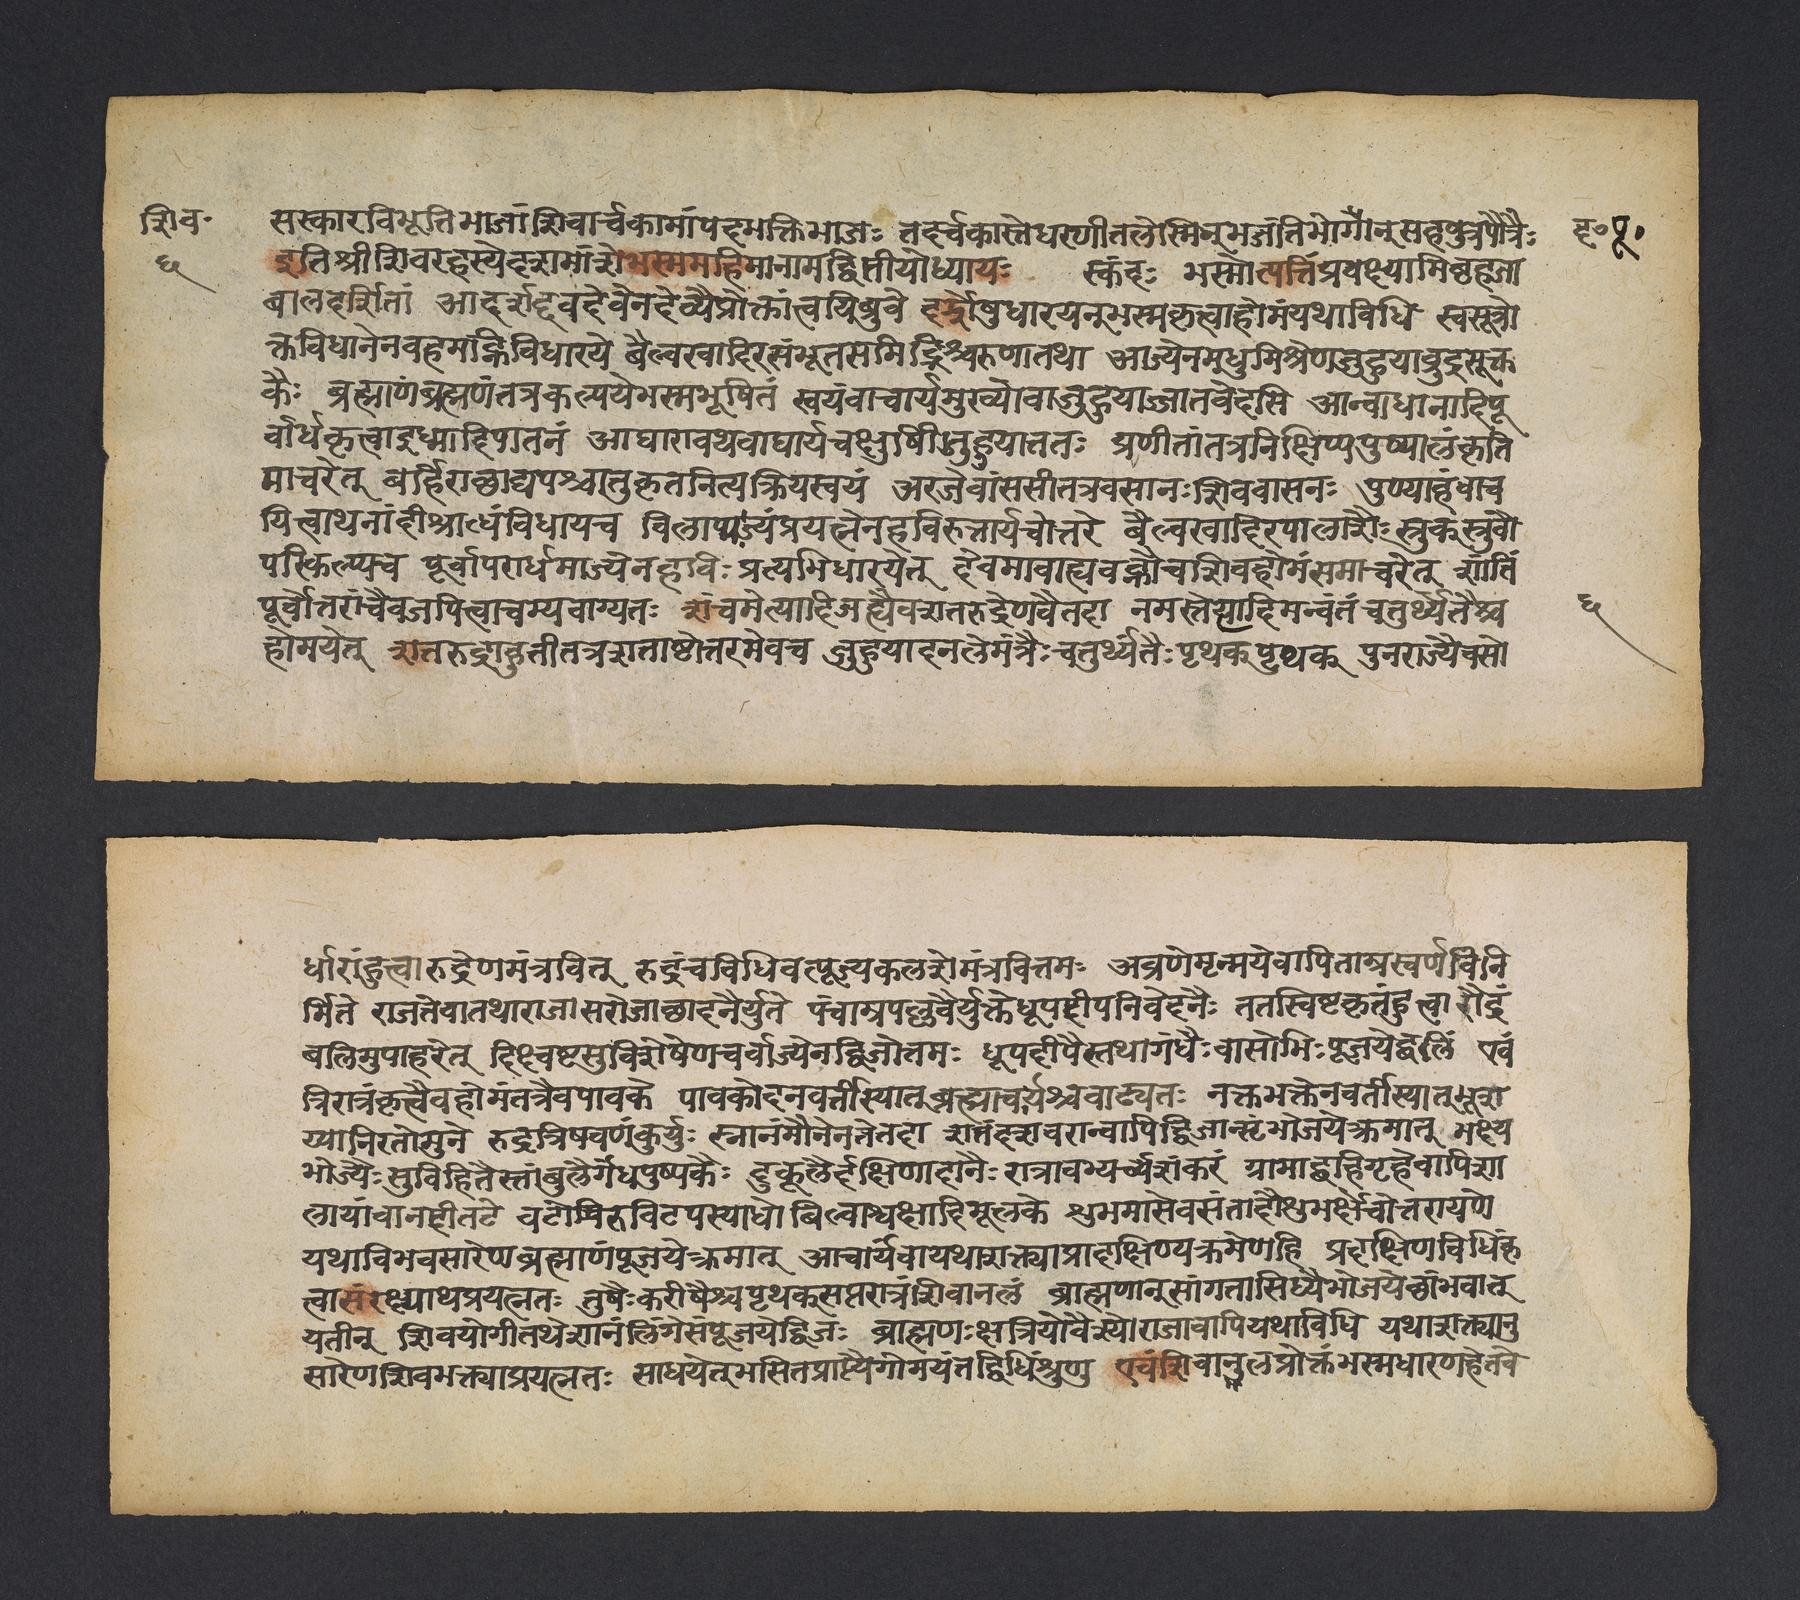 शिव॰ सस्कारविभूतिभाजां शिवार्चकामांपदभक्तिभाजः तदर्चकास्तेधरणीतलेस्मिन्भजंतिभोगान्सहपुत्रपौत्रैः द॰पू॰
६ इतिश्रीशिवरहस्येदशमांशेभस्ममहिमानामद्वितीयोध्यायः स्कंदः भस्मोत्पत्तिंप्रवक्ष्यामि
बालदर्शितां देवेनदेव्यैप्रोक्तां धारयन्भस्मकृत्वाहोमंयथाविधि स्वसूत्रो
क्तविधानेनवह्नमग्निंविधारये बैल्वखादिरसंभूतसमिद्भिश्चरुणातथा आज्येनमधुमिश्रेणजुहुयाद्रुद्रसूक्त
कैः ब्रह्माणंब्रह्मणंतत्रकल्पयेभस्मभूषितं स्वयंवाचार्यमुख्योवाजुहुयाज्जातवेदसि आन्वाधानादिपू
र्वार्धंकृत्वाइध्मादिपातनं आघारावथवाघार्यचक्षुषीजुहुयात्ततः प्रणीतांतत्रनिक्षिप्यपुष्पालंकृतिं
माचरेत् बर्हिराछाद्यपश्चात्तुकृतनित्यक्रियस्वयं शिववासनः पुण्याहंवाच
यित्वाथनांदीश्राध्धंविधायच प्रयत्नेनहविरुत्तार्यचोत्तरे बैल्वखादिरपालाशैः स्रुक्स्रुवौ
परिकल्प्यच पूर्वापरार्धमाज्येनहविःप्रत्यभिधारयेत् देवमावाह्यवह्नौचशिवहोमंसमाचरेत् शांतिं
पूर्वोत्तरांचैवजपित्वाचम्यवाग्यतः शंचमेत्यादिजप्त्यैवशतरुद्रेणवैतदा चतुर्थ्यंतैश्च ६
होमयेत् शतरुद्राहुतीतत्रशताष्टोत्तरमेवच जुहुयादनलेमंत्रैःचतुर्थ्यंतैःपृथक्पृथक् पुनराज्यैवसो
र्धारांहुत्वारुद्रेणमंत्रवित् रुद्रंचविधिवत्पूज्यकलशेमंत्रवित्तमः अव्रणेमृन्मयेवापिताम्रस्वर्णविनि
र्मिते राजतेवातथाराजा पंचाम्रपल्लवैर्युक्तेधूपदीपनिवेदनैः ततस्विष्टकृतंहुत्वा रौद्रं
बलिमुपाहरेत् चर्वाज्येनद्विजोत्तमः धूपदीपैस्तथागंधैःवासोभिःपूजयेद्बलिं एवं
त्रिरात्रंकृत्वैवहोमंतत्रैवपावके पावकोदनवर्तीस्यात् नक्तभक्तेनवर्तीस्यात्भूश
य्यानिरतोमुने रुद्रत्रिषवणंकुर्युः स्नानंमौनेनतेतदा द्विजान्सभोजयेत्क्रमात् भक्ष्य
भोज्यैःसुविहितैस्तांबुलैर्गंधपुष्पकैः दुकूलैर्दक्षिणादानैःरात्रावभ्यर्च्यशंकरं ग्रामाद्बहिगृहेवापिशा
लायांवानदीतटे बिल्वाश्वक्षादिमूलके शुभमासेवसंतादौशुभर्क्षेचोत्तरायणे
यथाविभवसारेणब्रह्माणंपूजयेत्क्रमात् आचार्यंवायथाशक्त्याप्रादक्षिण्यक्रमेणहि प्रदक्षिणविधिंकृ
त्वासंरक्ष्याथप्रयत्नतः तुषैःकरीषैश्चपृथक्सप्तरात्रंशिवानलं ब्राह्मणान्सांगतासिध्यैभोजयेछांभवात्
यतीन् शिवयोगीतथेशानंलिंगेसंपूजयेद्विजः ब्राह्मणःक्षत्रियोवैस्योराजावापियथाविधि यथाशक्त्यानु
सारेणशिवभक्त्याप्रयत्नतः साधयेत्भसितप्राप्त्यैगोमयंतद्विधिंश्रुणु एवंशिवानलप्रोक्तंभस्मधारणहेतवे